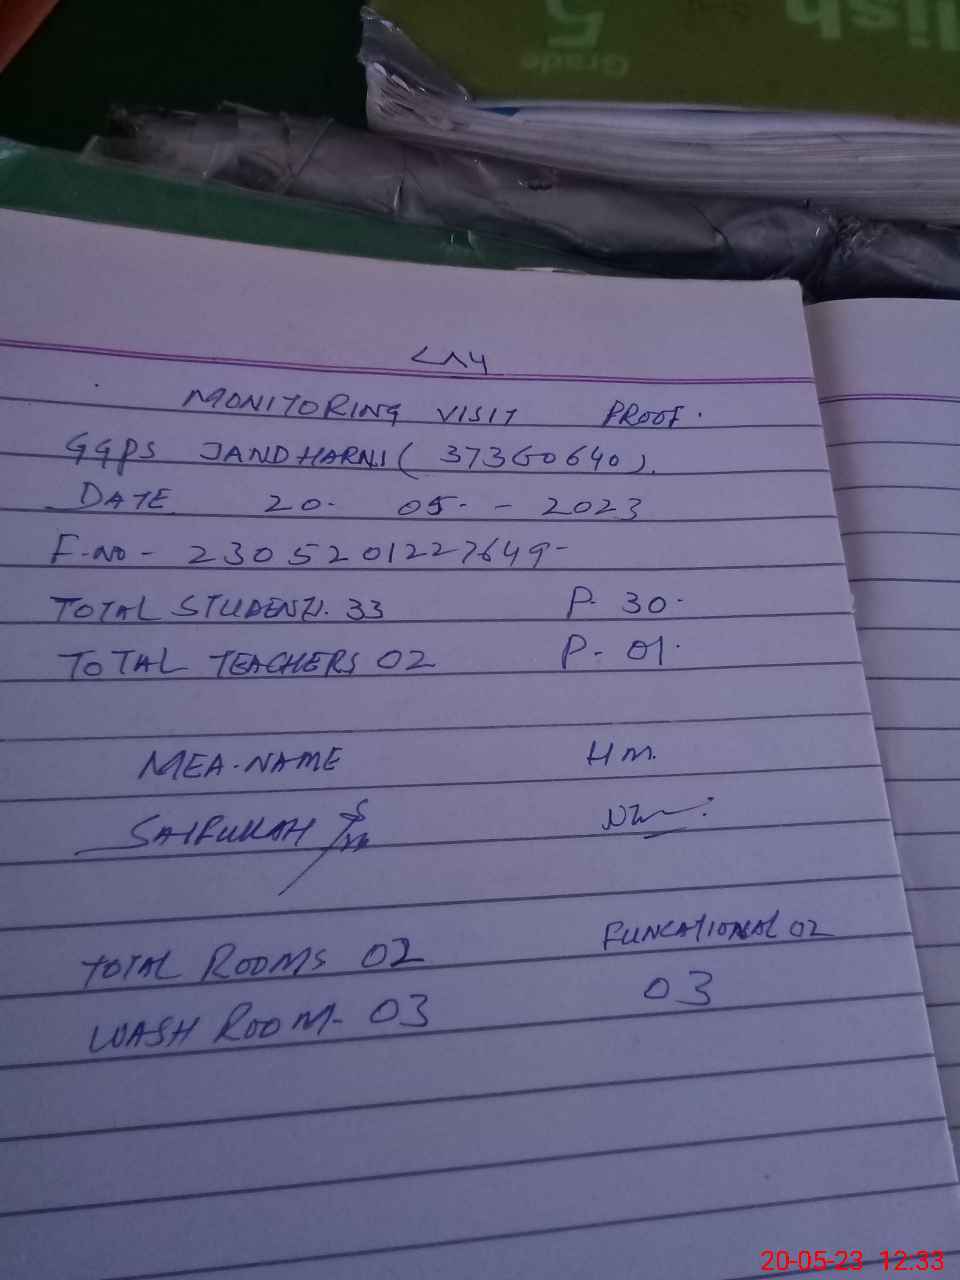 Grade 5
lish
MONITORING VISIT PROOF.
GGPS JANDHARNI (37360640).
DATE 20. 05. - 2023
F-no - 2305201227649-
TOTAL STUDENTS. 33 P. 30.
TOTAL TEACHERS 02 P- 01.
MEA-NAME H m.
SAIFULLAH
TOTAL ROOMS 02 FUNCATIONAL 02
WASH ROOM- 03 03
20-05-23 12:33